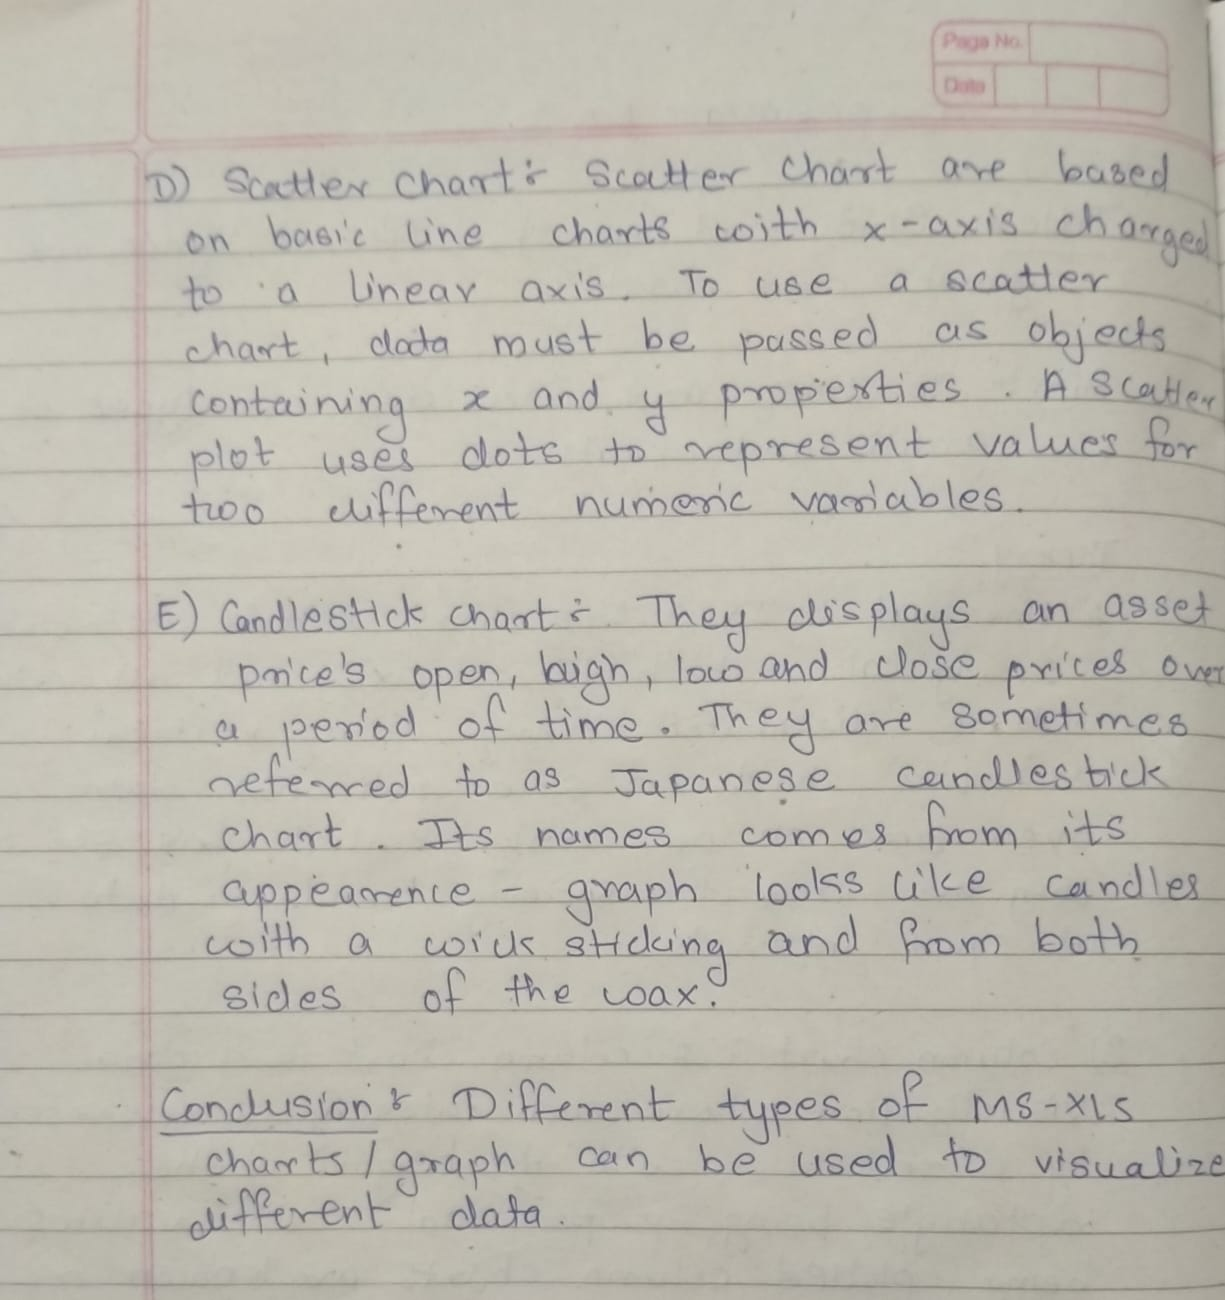 Page No.
Date
D) Scatter chart: Scatter chart are based
on basic line charts with x-axis charged
to a linear axis. To use a scatter
chart, data must be passed as objects
containing x and y properties. A Scatter
plot uses dots to represent values for
two different numeric variables.
E) Candlestick chart: They displays an asset
price's open, high, low and close prices over
a period of time. They are sometimes
referred to as Japanese candlestick
chart. Its names comes from its
appearence - graph looks like candles
with a wick sticking and from both
sides of the wax.
Conclusion: Different types of MS-XLS
charts/graph can be used to visualize
different data.